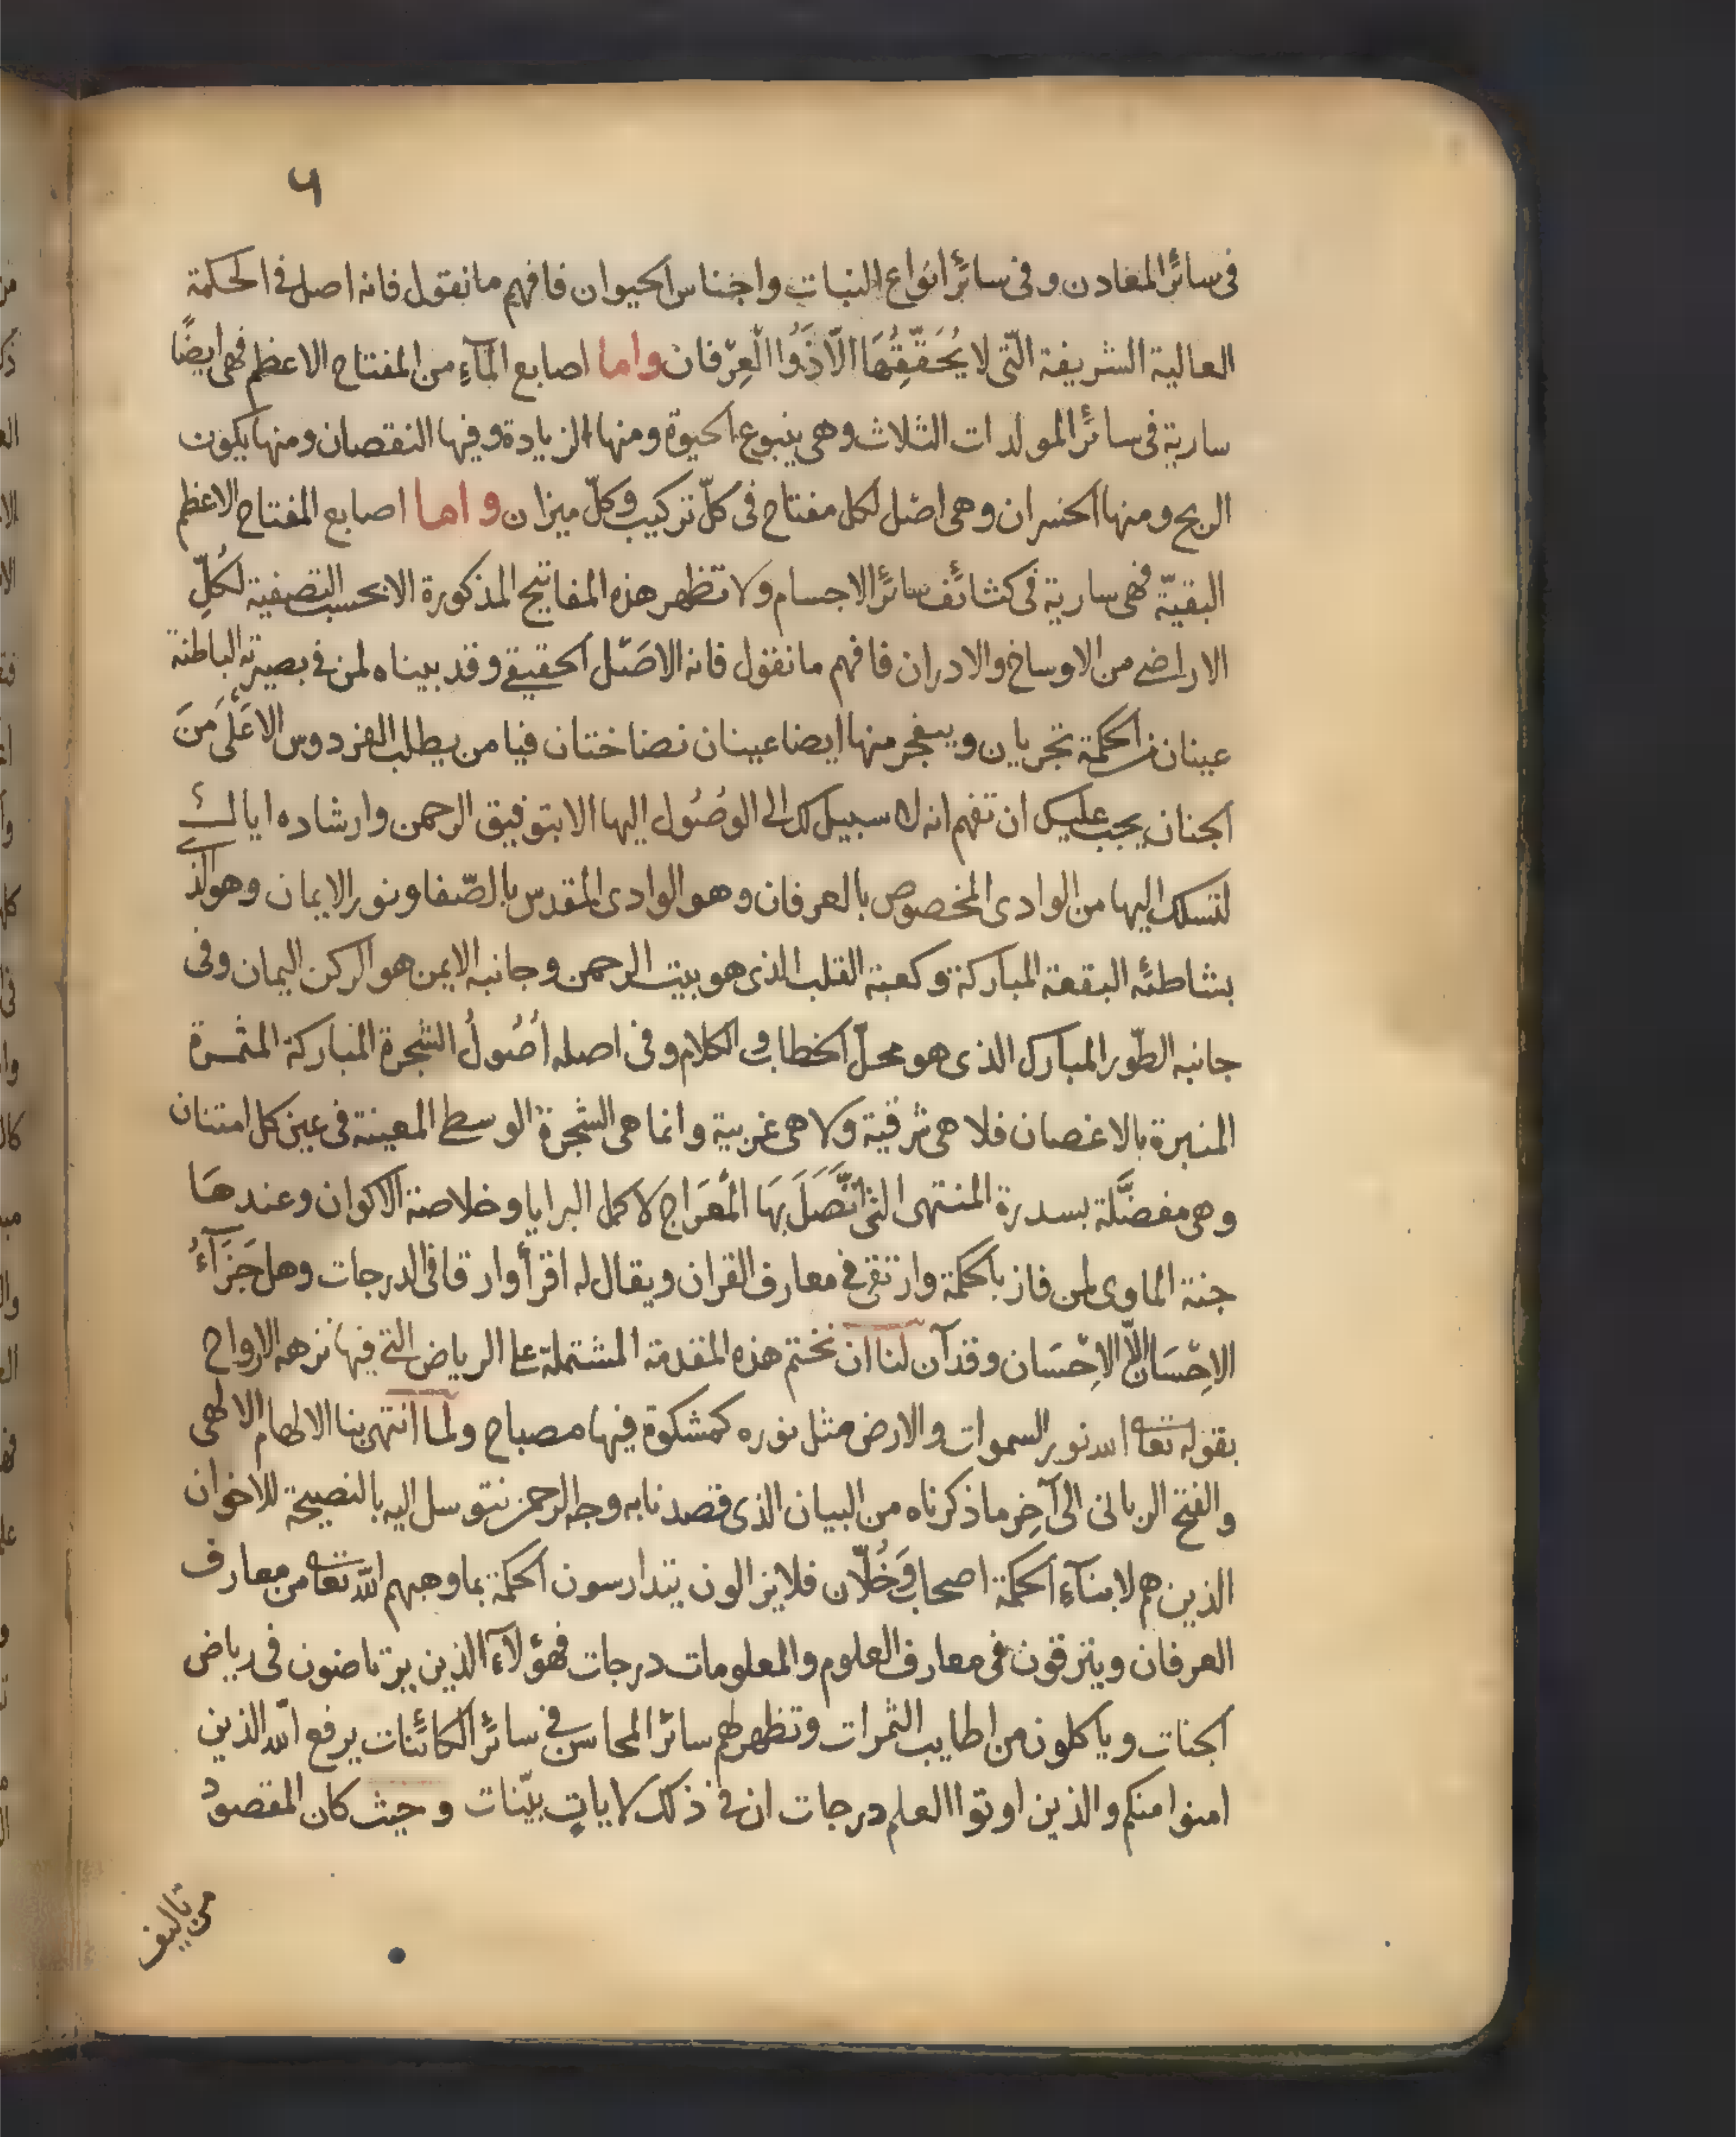 ٦
في سائر المعادن وفي سائر انواع النبات واجناس الحيوان فافهم ما نقول فانه اصل في الحكمة
العالية الشريفة الّتى لا يُحَقّقُهَا الّا ذَوُوا الْعِرْفان واما اصابع المآءِ من المفتاح الاعظم فهى ايضًا
سارية فى سائر المولدات الثلاث وهى ينبوع الحيوة ومنها الزيادة وفيها النقصان ومنها يكون
الربح ومنها الخسران وهى اصْل لكل مفتاح فى كلّ تركيب وكلّ ميزان واما اصابع المفتاح الاعظم
البقيّة فهى سارية فى كثائف سائر الاجسام ولا تظهر هذه المفاتيح المذكورة الا بحسب التصفية لكُلِّ
الاراضى من الاوساخ والادران فافهم ما نقول فانه الاصْل الحقيقى وقد بيناه لمن فى بصيرته الباطنة
عينان من الحكمة تجريان وينفجر منها ايضا عينان نضاختان فيا من يطلب الفردوس الاعْلَى مِنَ
الجنان يجب عليك ان تفهم انه لا سبيل لك الى الوصُول اليها الا بتوفيق الرحمن وارشاده اياك
لتسلك اليها من الوادى المخصوص بالعرفان وهو الوادى المقدس بالصّفا ونور الايمان وهو الذى
بشاطئه البقعة المباركة وكعبة القلب الذى هو بيت الرحمن وجانبه الايمن هو الركن اليمان وفى
جانبه الطّور المبارك الذى هو محلّ الخطاب والكلام وفى اصله اُصُولُ الشجرة المباركة المثمرة
المنيرة بالاغصان فلا هى شرقية ولا هى غربية وانما هى الشجرة الوسطى المعينة فى عين كل امتنان
وهى مفضَّلة بسدرة المنتهى التى اتّصَلَ بِهَا الْمعْرَاج لاكمل البرايا وخلاصة الاكوان وعندهَا
جنة الماوى لمن فاز بالحكمة وارتقى فى معارف القران ويقال له اقرأ وارقا فى الدرجات وهل جَزَآءُ
الاِحْسَانِ الّا الاِحْسَان وقد آن لنا ان نختم هذه المقدمة المشتملة على الرياض التى فيها نزهه الارواح
بقوله تعالى الله نور السموات والارض مثل نوره كمشكوة فيها مصباح ولما انتهى بنا الالهام الالهى
والفتح الربانى الى آخِر ما ذكرناه من البيان الذى قصدنا به وجه الرحمن نتوسل اليه بالنصيحة للاخوان
الذين هم لابنآءِ الحكمة اصحاب وَخُلّان فلا يزالون يتدارسون الحكمة بما وهبهم الله تعالى من معارف
العرفان ويترقون فى معارف العلوم والمعلومات درجات فهؤلآءِ الذين يرتاضون فى رياض
الجنات وياكلون من اطايب الثمرات وتظهر لهم سائر المحاسن فى سائر الكائنات يرفع الله الذين
امنوا منكم والذين اوتوا العلم درجات ان فى ذلك لاياتٍ بيّنات وحيث كان المقصود
من تاليف